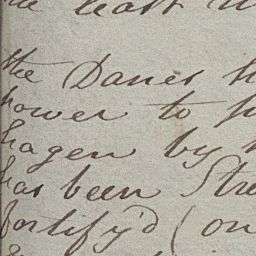 the Danes
power to
hagen by
has been Stre
fortify'd (on